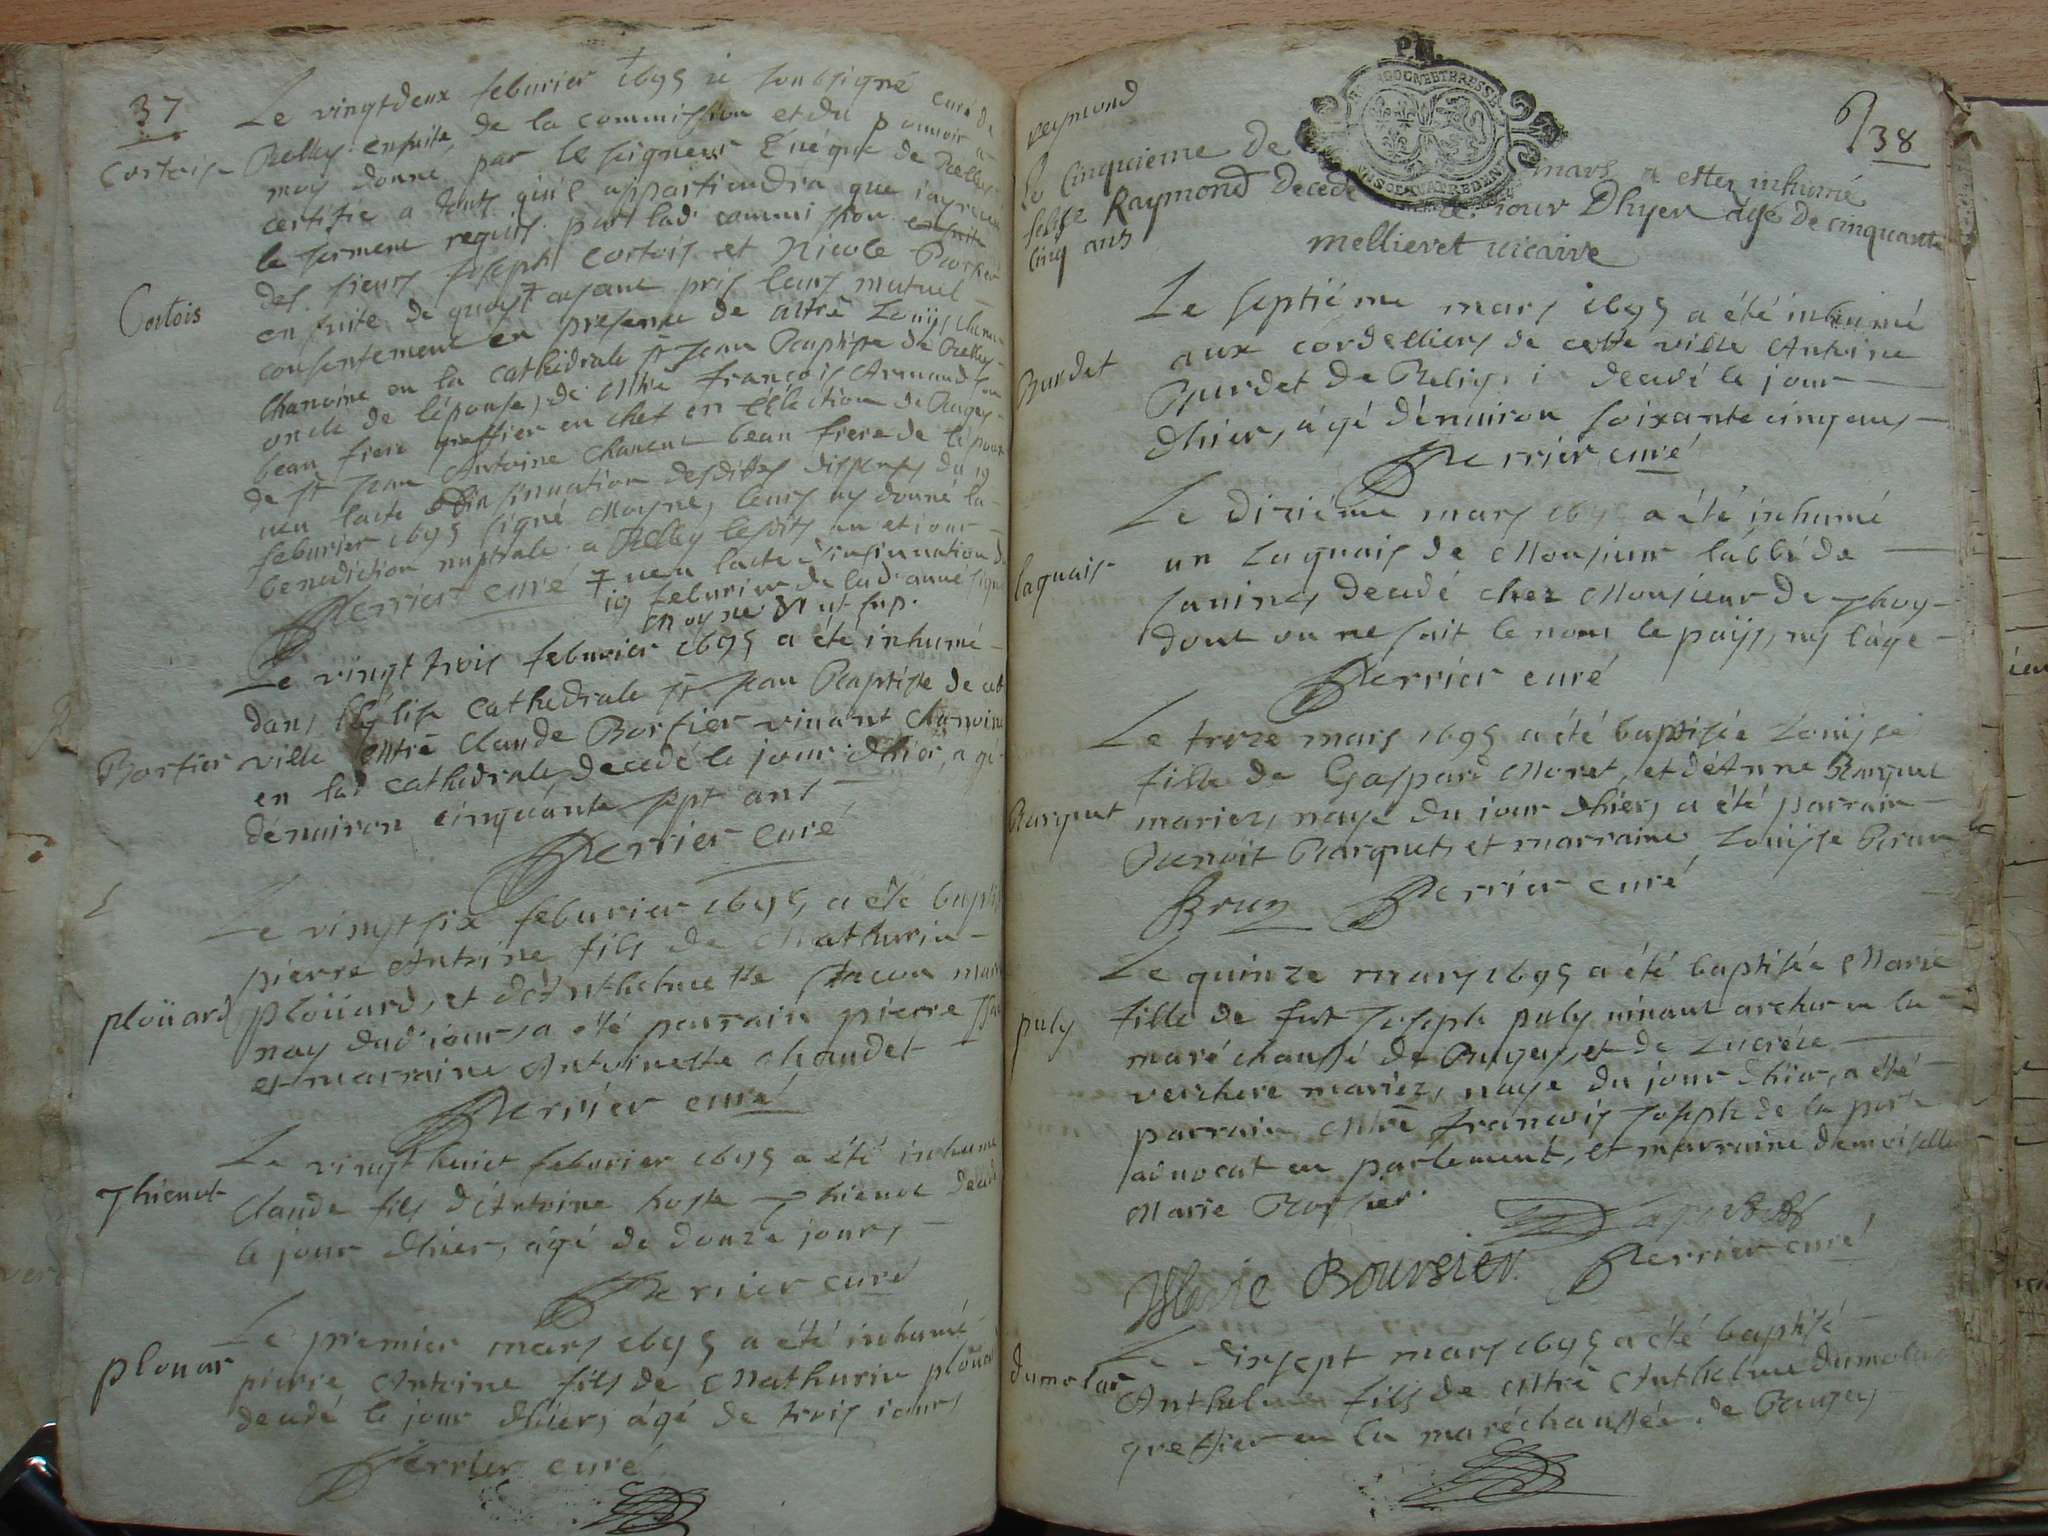 37
Le vingtdeux feburier 1695 ie soubsigné curé de
Cortois Belley ensuite de la commission et du pouuoir a
moy donné par le seigneur Euéque de Belley
certifie a tous qu'il appartiendra que iay receu
le serment requis par lad. commission ensuite
des sieurs Joseph Cortois et Nicole Borsier
Cortois
en suite de quoy ayant pris leurs mutuel
consentement en presence de Mtre Louys
chanoine en la cathedrale St Jean Baptiste de Belley
oncle de l'épouse, de Mtre francois Armand son
beau frere greffier en chef en l'élection de Bugey
de Sr Jean Antoine beau frere de l'époux
veu lacte d'insinuation desdittes dispenses du 19
feburier 1695 signé Moyne, leurs ay donné la
benediction nuptiale a Belley lesdits an et iour
Perrier curé veu lacte d'insinuation du
19 feburier de lad. année signé
Moyne ut sup.
Le vingt trois feburier 1695 a été inhumé
dans l'église cathedrale St Jean Baptiste de cette
Borsier ville Mtre Claude Borsier viuant chanoine
en lad cathedrale decedé le jour d'hier, agé
dénuiron cinquante sept ans
Perrier curé
Le vingt six feburier 1695 a été baptisé
pierre Antoine fils de Mathurin
ploüard ploüard, et d'Anthelmette
nay dud jour, a été parrain pierre
et marraine Antoinette chaudet
Perrier curé
Le vingt huict feburier 1695 a été inhumé
Thienot Claude fils d'Antoine hoste Thienot decedé
le jour d'hier, âgé de douze jours
Perrier curé
Le premier mars 1695 a été inhumé
plouar pierre Antoine fils de Mathurin ploüard
decedé le jour d'hier, âgé de trois iours
Perrier curé
38
reymond
Le Cinquieme de mars a ester inhumé
Raymond decede le iour Dhyer agé de cinquante
cinq ans
mellieret uicaire
Le septiéme mars 1695 a été inhumé
aux cordelliers de cette ville Antoine
Burdet Burdet de decedé le jour
d'hier, âgé dénuiron soixante cinq ans
Perrier curé
Le diziéme mars 169 a été inhumé
laquais un laquais de Monsieur l'abbé de
decedé chez Monsieur de Thoy
dont on ne sait le nom le païs, ny l'âge
Perrier curé
Le treze mars 1695 a été baptisée Louyse
fille de Gaspard Moret, et d'Anne Barquet
Barquet mariez, naye du jour d'hier, a été parrain
Benoit Barquet, et marraine Louyse Brun
Brun Perrier curé
Le quinze mars 1695 a été baptisée Marie
puly fille de fut Joseph puly viuant archer en la
maréchaussé de Bugey, et de Lucréce
verchere mariez, naye du jour d'hier, a été
parrain Mtre francois Joseph de la porte
aduocat en parlement, et marraine demoiselle
Marie Borsier
Marie Boursier. Perrier curé
Le dixsept mars 1695 a été baptisé
dumolar Anthelme fils de Mtre Anthelme dumolar
greffier en la maréchaussée de Baugey